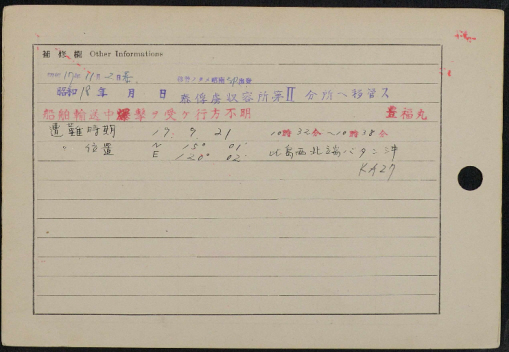 補修欄 Other Informations
昭和17年11月2日
昭和18年 月 日 泰俘虜収容所第Ⅱ分所ヘ移管ス
船舶輸送中爆撃ヲ受ケ行方不明 豊福丸
遭難時期 19. 9. 21 10時32分〜10時38分
〃 位置 N 15° 01′ 比島西北端バタン沖
E 120° 02′
KM27